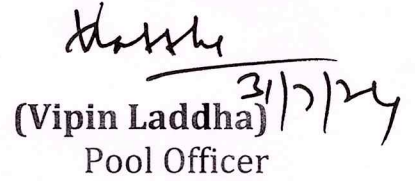 31/7/24
(Vipin Laddha)
Pool Officer